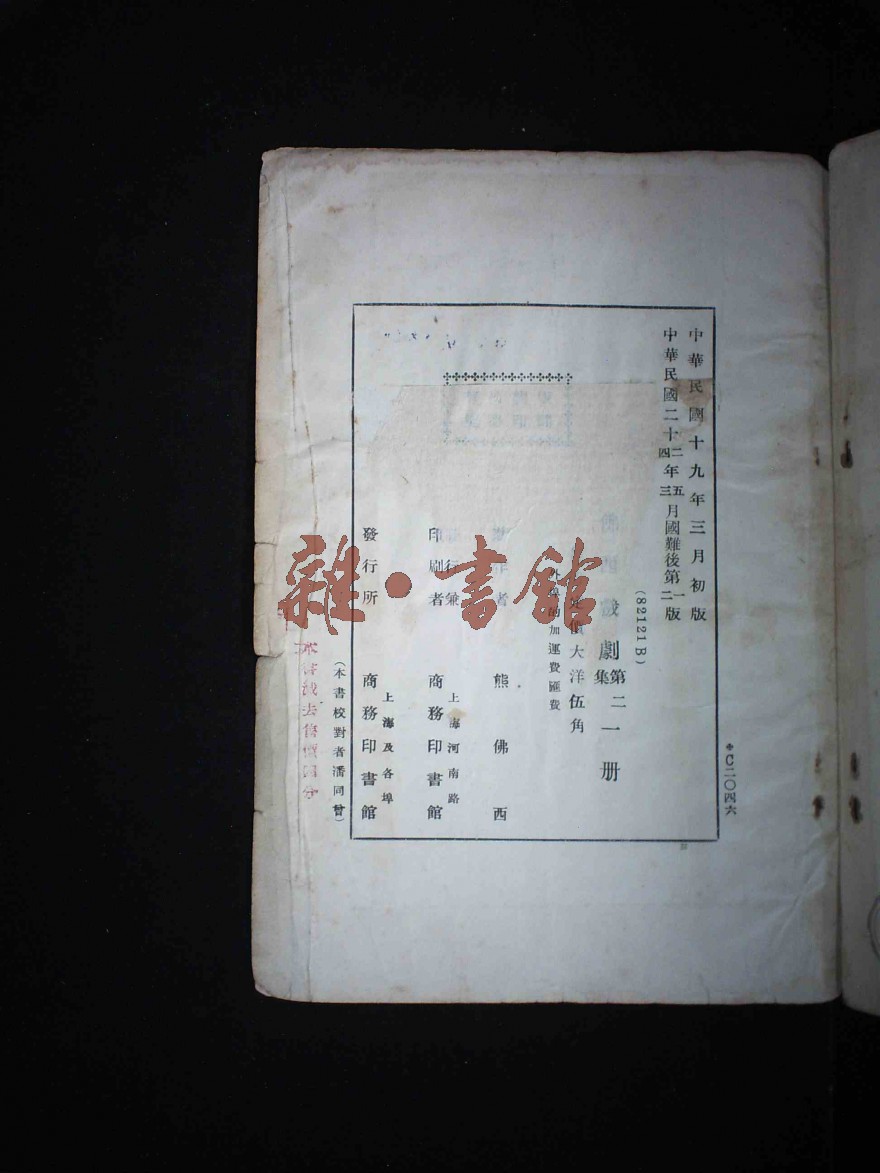 中華民國十九年三月初版
中華民國二十二年五月國難後第一版
四 三 二
(82121B)
佛西戲劇第二集一册
定價大洋伍角
外埠酌加運費匯費
著作者 熊佛西
發行兼印刷者 上海河南路 商務印書館
發行所 上海及各埠 商務印書館
(本書校對者潘同曾)
＊C二〇四六
雜·書館